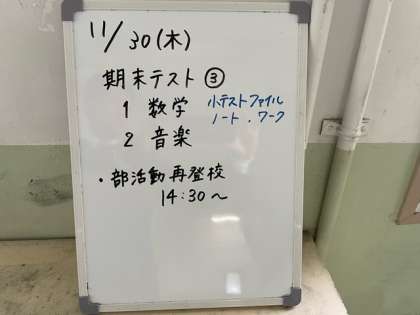 11/30(木)
期末テスト ③
1 数学 小テストファイル
ノート.ワーク
2 音楽
・部活動再登校
14:30〜